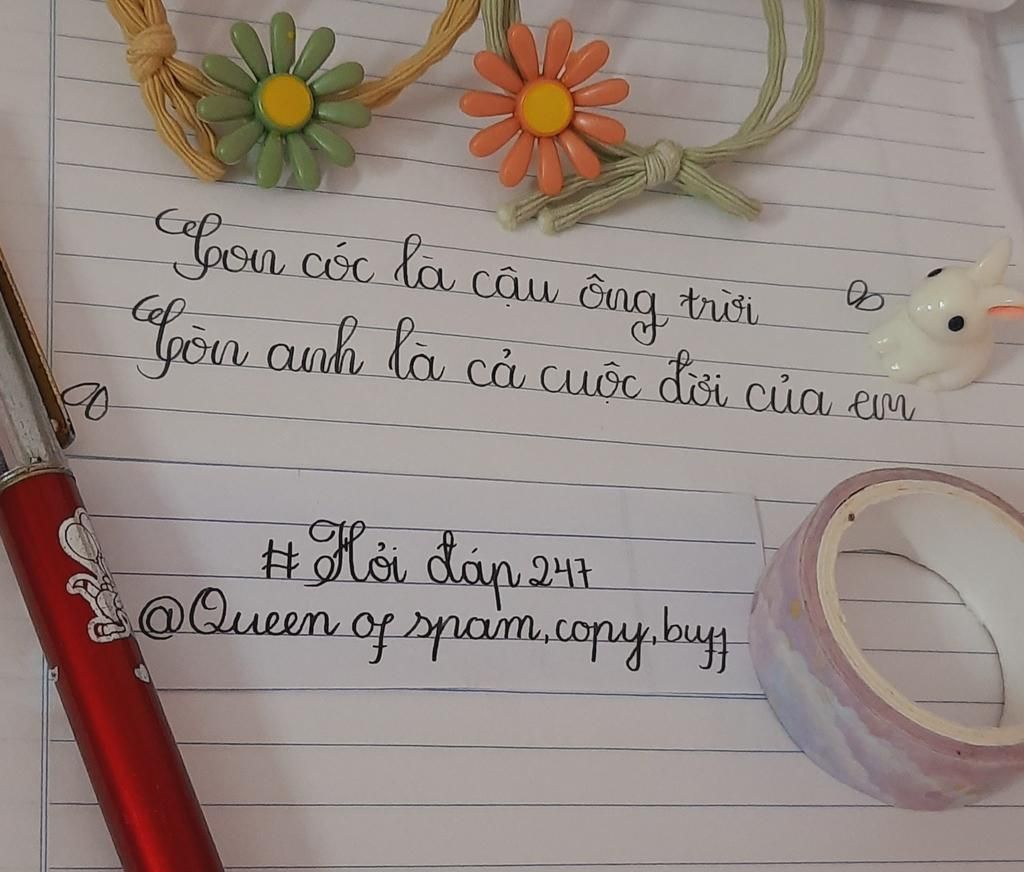 Con cóc là cậu ông trời
Còn anh là cả cuộc đời của em
#Hỏi đáp 247
@Queen of spam,copy,buff